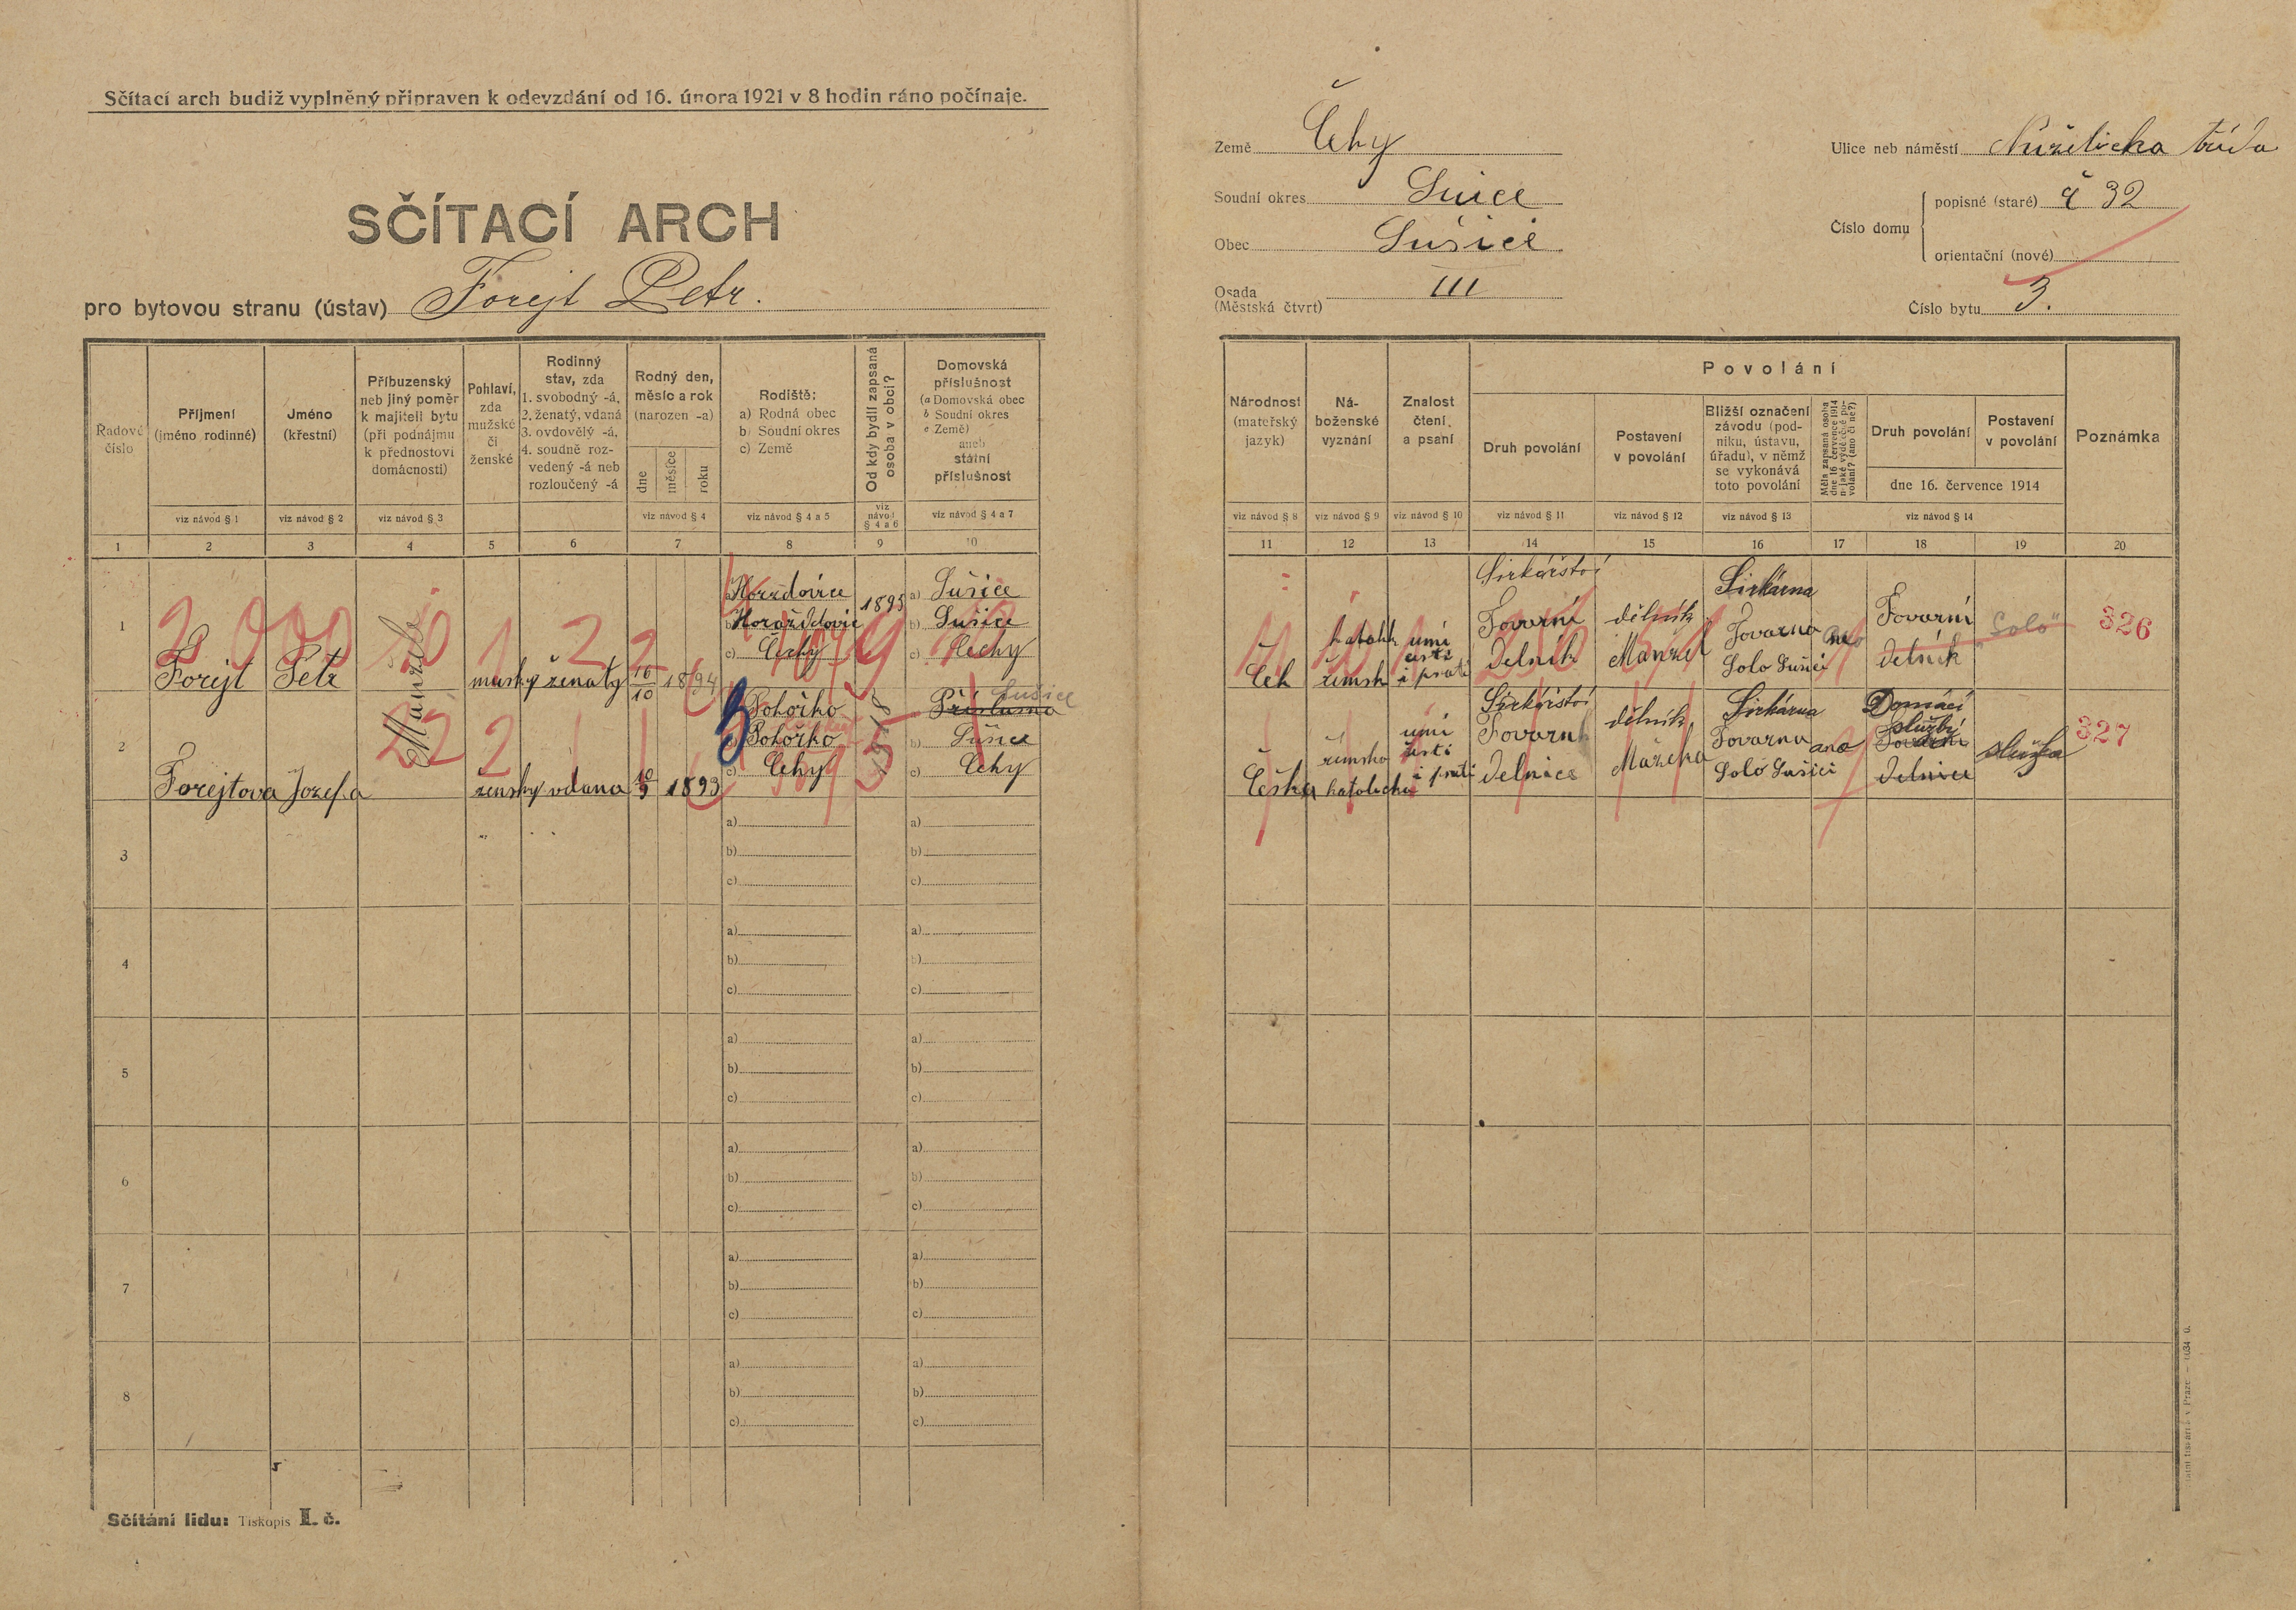 Sčítací arch budiž vyplněný připraven k odevzdání od 16. února 1921 v 8 hodin ráno počínaje.
SČÍTACÍ ARCH
pro bytovou stranu (ústav) Forejt Petr.
Země Čehy
Soudní okres Sušice
Obec Sušice
Osada (Městská čtvrt) III
Ulice neb náměstí třída
Číslo domu
popisné (staré) č 32
orientační (nové)
Číslo bytu 3.
Řadové číslo
Příjmení (jméno rodinné)
Jméno (křestní)
Příbuzenský neb jiný poměr k majiteli bytu (při podnájmu k přednostovi domácnosti)
Pohlaví, zda mužské či ženské
Rodinný stav, zda 1. svobodný -á, 2. ženatý, vdaná 3. ovdovělý -á, 4. soudně rozvedený -á neb rozloučený -á
Rodný den, měsíc a rok (narozen -a)
dne
měsíce
roku
Rodiště:
a) Rodná obec
b) Soudní okres
c) Země
Od kdy bydlí zapsaná osoba v obci?
Domovská příslušnost
(a Domovská obec
b Soudní okres
c Země)
aneb státní příslušnost
viz návod § 1
viz návod § 2
viz návod § 3
viz návod § 4
viz návod § 4 a 5
viz návod § 4 a 6
viz návod § 4 a 7
1 2 3 4 5 6 7 8 9 10
Národnost (mateřský jazyk)
Náboženské vyznání
Znalost čtení, a psaní
Povolání
Druh povolání
Postavení v povolání
Bližší označení závodu (podniku, ústavu, úřadu), v němž se vykonává toto povolání
Měla zapsaná osoba dne 16 července 1914 nějaké výdělečné povolání? (ano či ne?)
Druh povolání
Postavení v povolání
dne 16. července 1914
Poznámka
viz návod § 8
viz návod § 9
viz návod § 10
viz návod § 11
viz návod § 12
viz návod § 13
viz návod § 14
11 12 13 14 15 16 17 18 19 20
1
Forejt
Petr
Manžel
mužsky
ženatý
16
10
1894
Horaždovice
b) Horažďovic
c) Čechy
1895
a) Sušice
b) Sušice
c) Čechy
Čeh
katohk
římsk
umí
čisti
i psati
Sirkářství
Tovarní
Delník
dělník
Manžel
Sirkárna
Tovarna
Solo Sušici
Tovarní
Delník
"Solo"
326
2
Forejtova
Jozefa
žensky
vdana
10
9
1893
Pohořko
Pohořko
c) Čehy
1918
Příslušna
Sušice
b) Sušice
c) Čehy
Češka
římsko
katolicka
umí
čisti
i psati
Sirkářství
Tovarni
Delnice
dělník
Mažélka
Sirkárna
Tovarna
Solo Sušici
ano
Domácí
služby
Tovarni
Delnice
služka
327
3
a)
b)
c)
a)
b)
c)
4
a)
b)
c)
a)
b)
c)
5
a)
b)
c)
a)
b)
c)
6
a)
b)
c)
a)
b)
c)
7
a)
b)
c)
a)
b)
c)
8
a)
b)
c)
a)
b)
c)
Sčítání lidu: Tiskopis I. č.